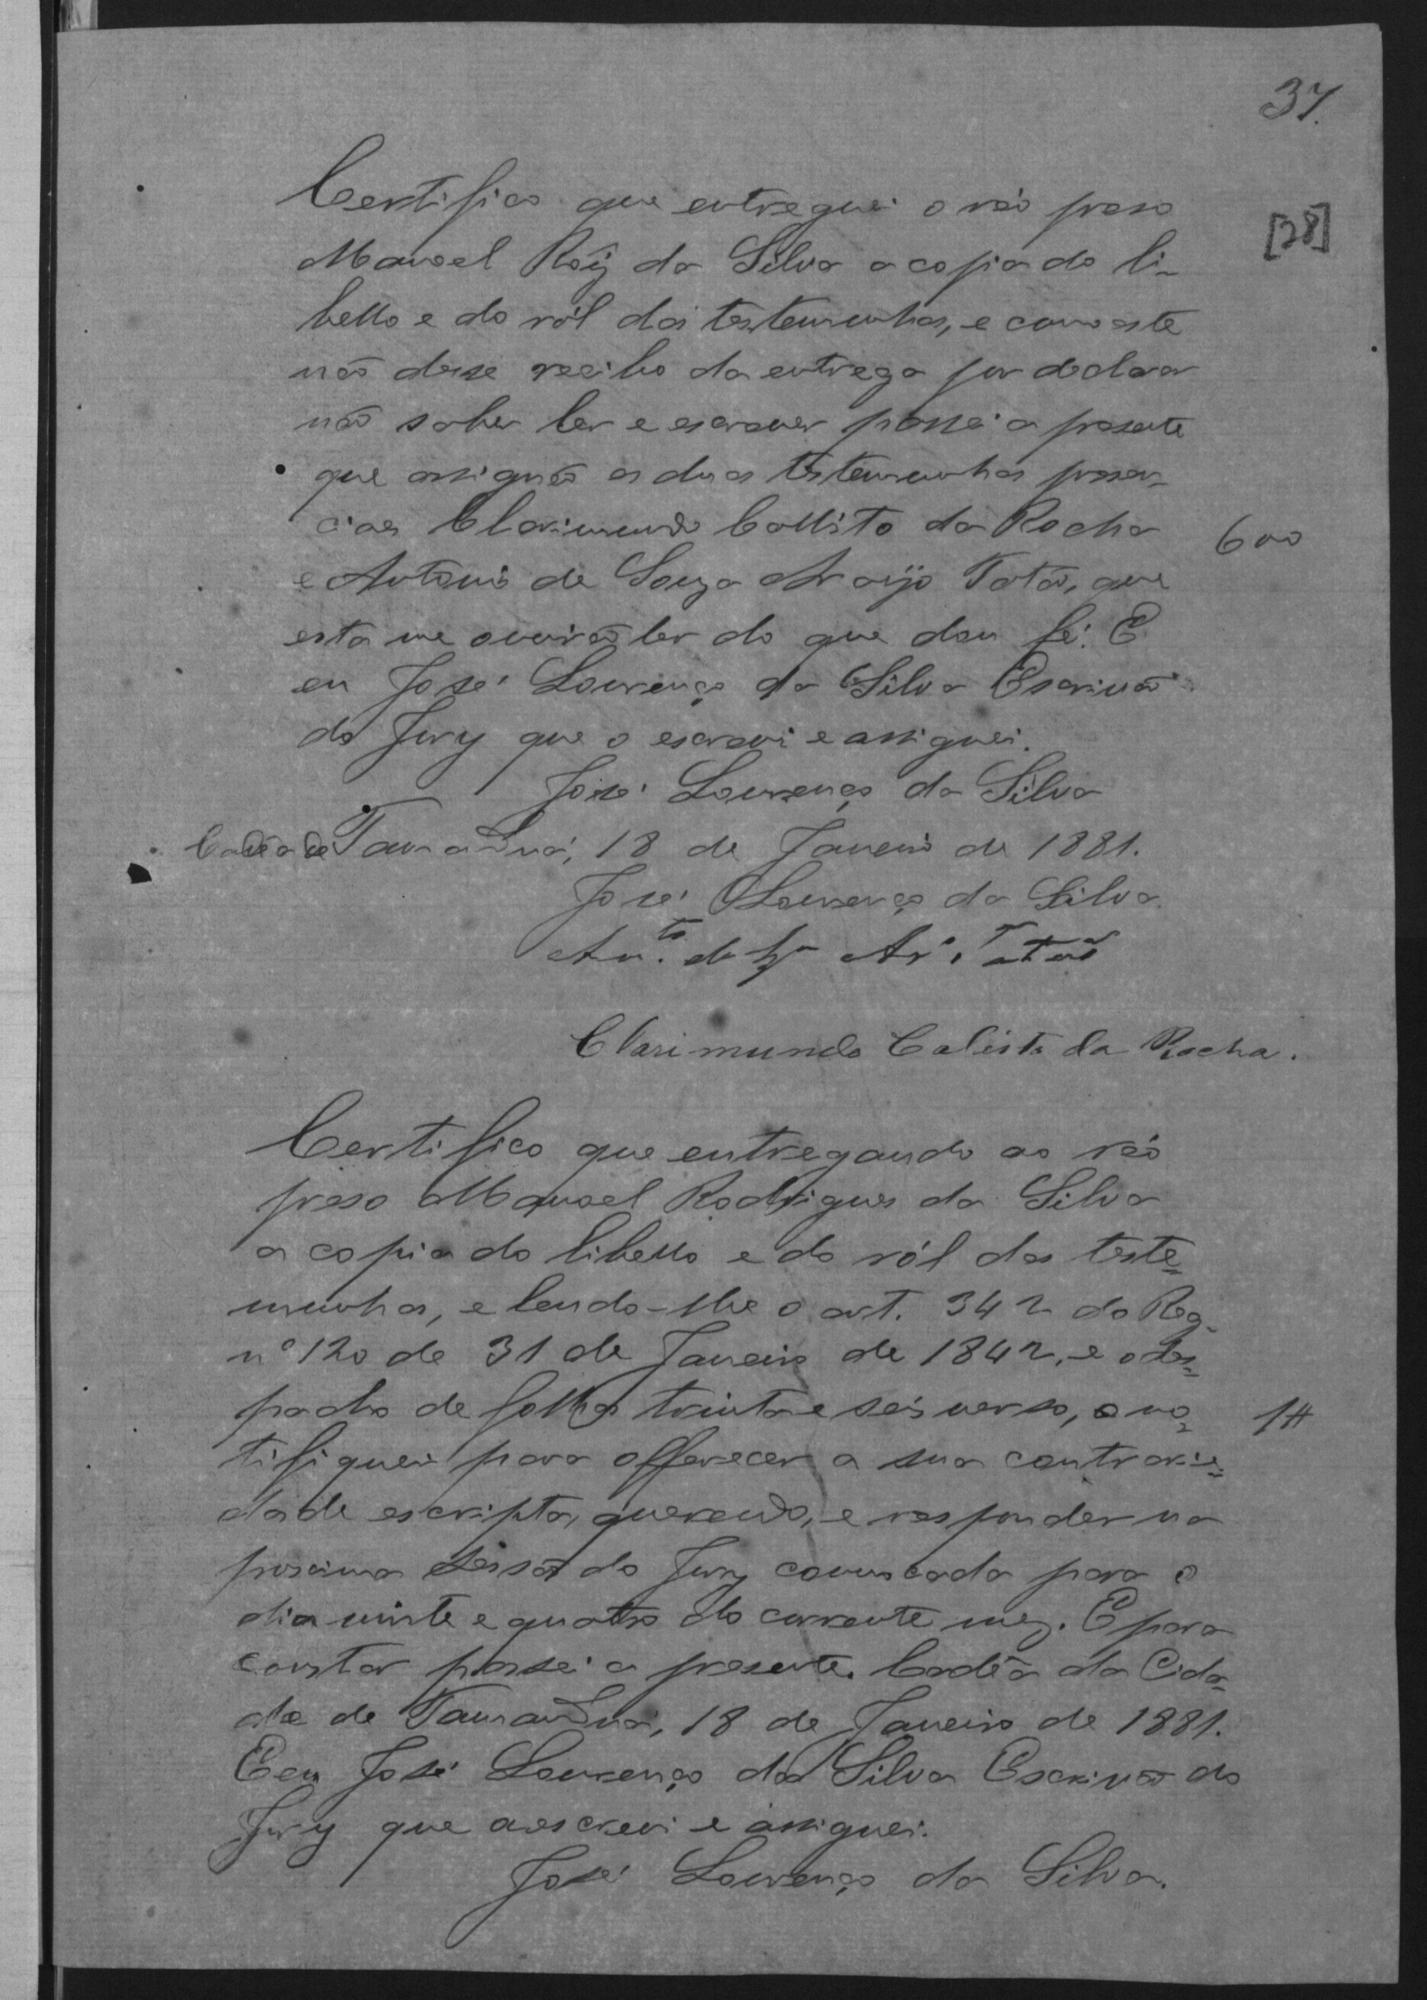 37.
[28]
Certifico que entreguei o réo preso
Manoel Roiz da Silva a copia do li-
bello e do ról das testemunhas, e como este
não desse recibo da entrega por declarar
não saber ler e escrever passei a presente
que assignão as duas testemunhas presen-
ciaes Clarimundo Callisto da Rocha
600
e Antonio de Souza Araujo Tatão, que
esta me ouvirão ler do que dou fé. E
eu José Lourenço da Silva Escrivão
do Jury que o escrevi e assignei.
José Lourenço da Silva
Cadêa de Tamanduá, 18 de Janeiro de 1881.
José Lourenço da Silva.
Anto. de Sza Aro. Tatão
Clarimundo Calisto da Rocha.
Certifico que entregando ao réo
preso Manoel Rodrigues da Silva
a copia do libello e do ról das teste=
munhas, e lendo-lhe o art. 342 do Reg.
nº 120 de 31 de Janeiro de 1842, e o des=
pacho de folhas trinta e seis verso, o no=
1#
tifiquei para offerecer a sua contrarie=
dade escripta, querendo, e responder na
proxima sessão do Jury convocada para o
dia vinte e quatro do corrente mez. E para
constar passei a presente. Cadêa da Cida-
de de Tamanduá, 18 de Janeiro de 1881.
E eu José Lourenço da Silva Escrivão do
Jury que a escrevi e assignei.
José Lourenço da Silva.